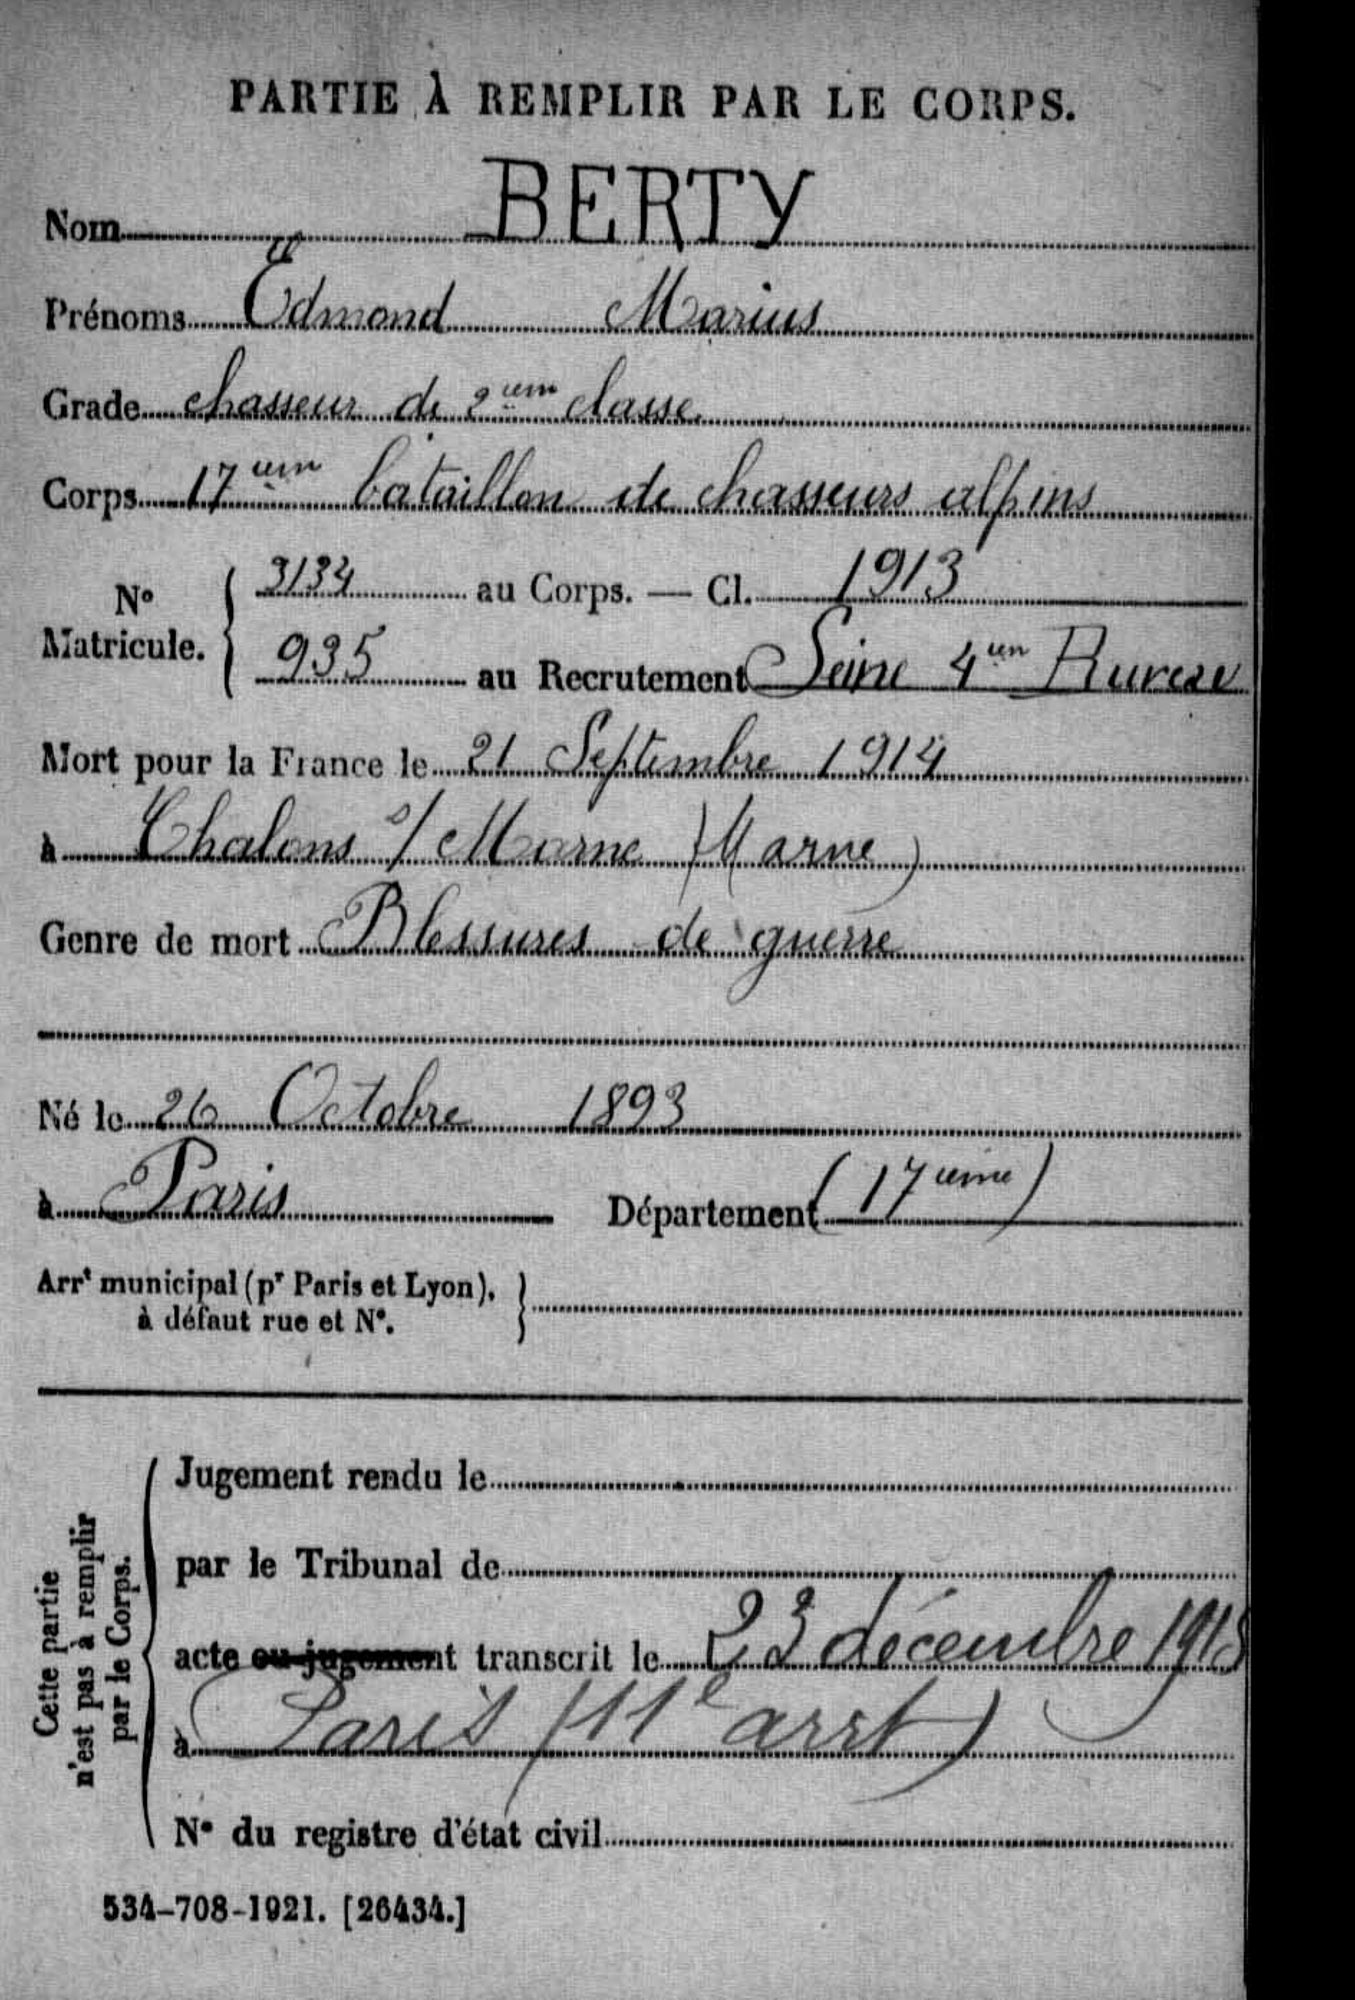 PARTIE À REMPLIR PAR LE CORPS.
Nom BERTY
Prénoms Edmond Marius
Grade chasseur de 2ᵉᵐ classe
Corps 17ᵉᵐ bataillon de chasseurs alpins
N° Matricule. { 3134 au Corps. — Cl. 1913
935 au Recrutement Seine 4ᵉᵐ Bureau
Mort pour la France le 21 Septembre 1914
à Chalons s/ Marne (Marne)
Genre de mort Blessures de guerre
Né le 26 Octobre 1893
à Paris Département (17ᵉᵐᵉ)
Arrᵗ municipal (pʳ Paris et Lyon), }
à défaut rue et N°.
Cette partie
n'est pas à remplir
par le Corps.
Jugement rendu le
par le Tribunal de
acte ou jugement transcrit le 23 décembre 1915
à Paris (11ᵉ arrt)
N° du registre d'état civil
534-708-1921. [26434.]